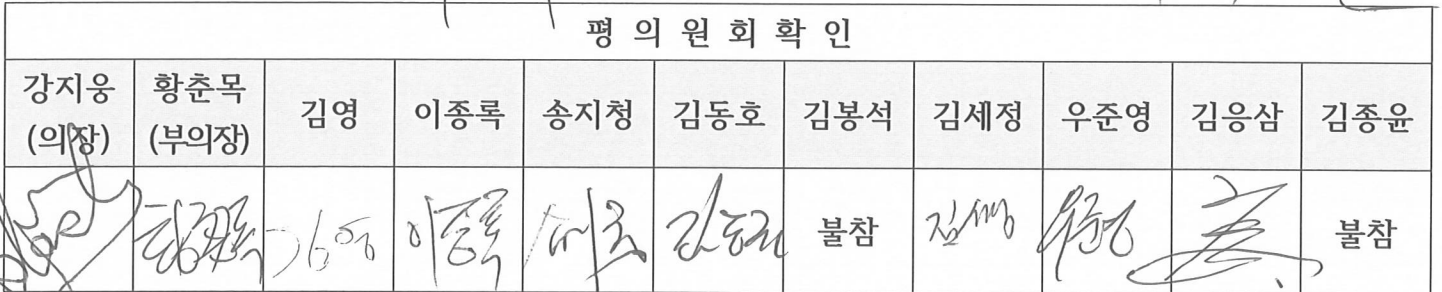 평 의 원 회 확 인
강지웅 (의장) 황춘목 (부의장) 김영 이종록 송지청 김동호 김봉석 김세정 우준영 김응삼 김종윤
황춘목 김영 이종록 김동호 불참 김세정 우준영 불참